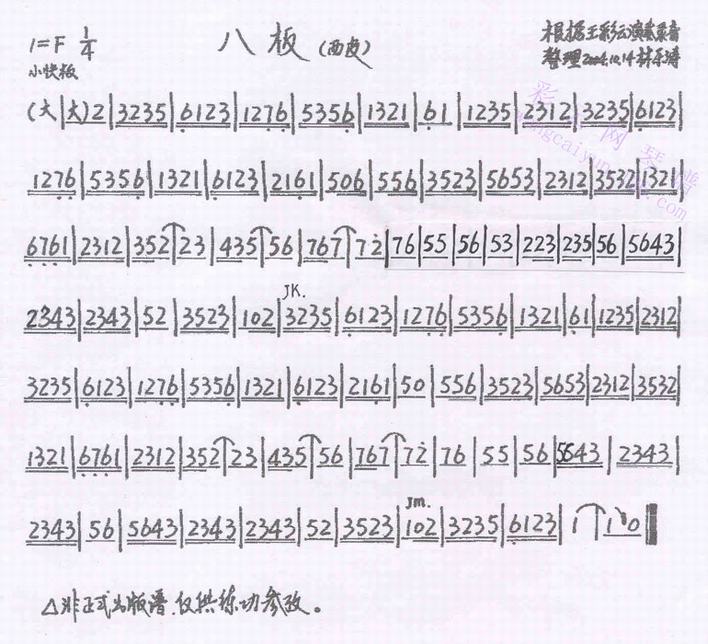 1=F 1/4
小快板
八板(西皮)
根据王彩云演奏录音
整理2004.10.14
(大|大)2|3235|6123|1276|5356|1321|61|1235|2312|3235|6123|
1276|5356|1321|6123|2161|506|556|3523|5653|2312|3532|1321|
6761|2312|352|23|435|56|767|72|76|55|56|53|223|235|56|5643|
JK.
2343|2343|52|3523|102|3235|6123|1276|5356|1321|61|1235|2312|
3235|6123|1276|5356|1321|6123|2161|50|556|3523|5653|2312|3532|
1321|6761|2312|352|23|435|56|767|72|76|55|56|5543|2343|
Jm.
2343|56|5643|2343|2343|52|3523|102|3235|6123|1|10‖
△非正式出版谱.仅供练功参考。